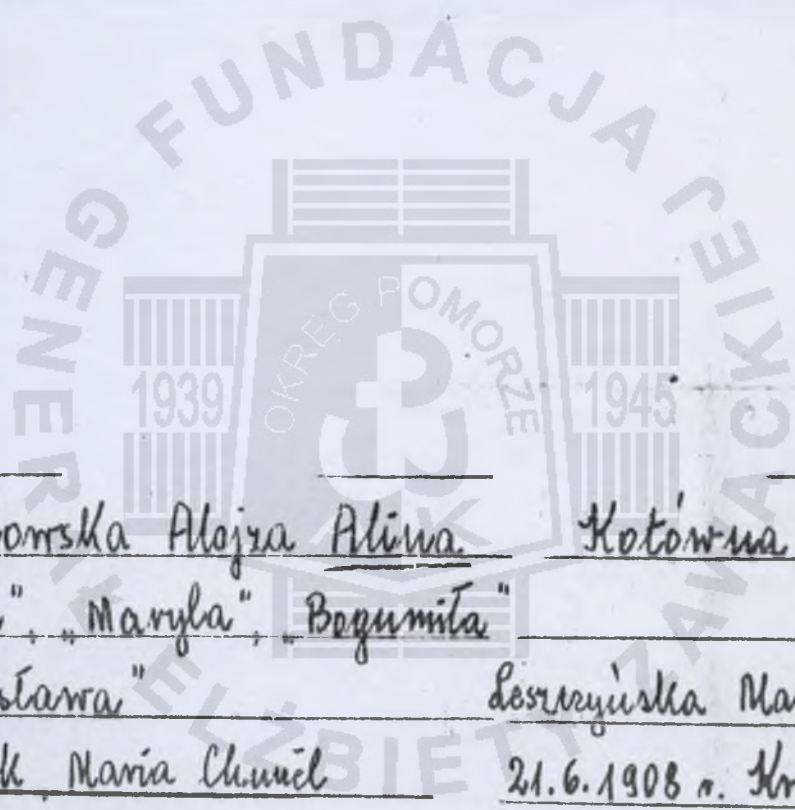 FUNDACJA GENERAŁ ELŻBIETY ZAWACKIEJ
OKRĘG POMORZE
1939 1945
AK
owska Alojza Alina Kotówna
", "Maryla", "Bogumiła"
sława" Leszczyńska Ma
k Maria Chmiel 21.6.1908 r. Kr